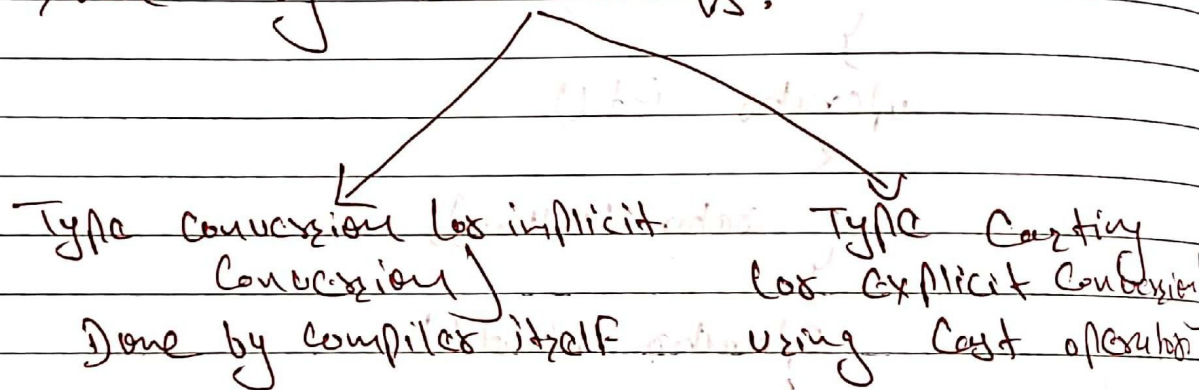 vs.
Type conversion (or implicit Conversion)
Done by compiler itself
Type Casting
(or explicit Conversion
using Cast operator